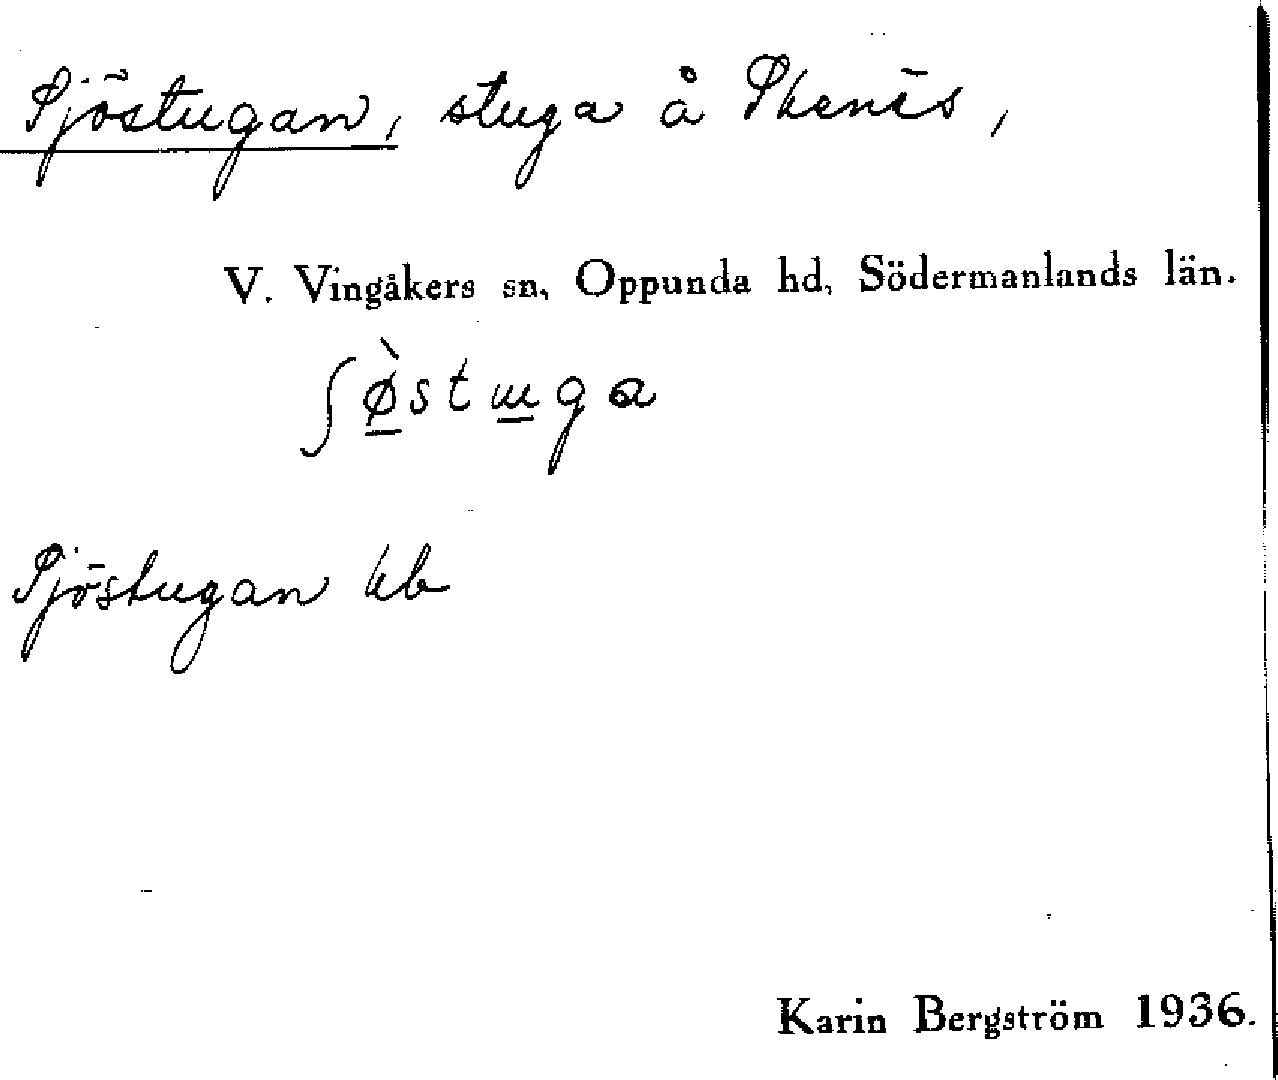 Sjöstugan, stuga å Skenäs,
V. Vingåkers sn, Oppunda hd, Södermanlands län.
ʃø̠̀stɯ̠ga
Sjöstugan kb
Karin Bergström 1936.